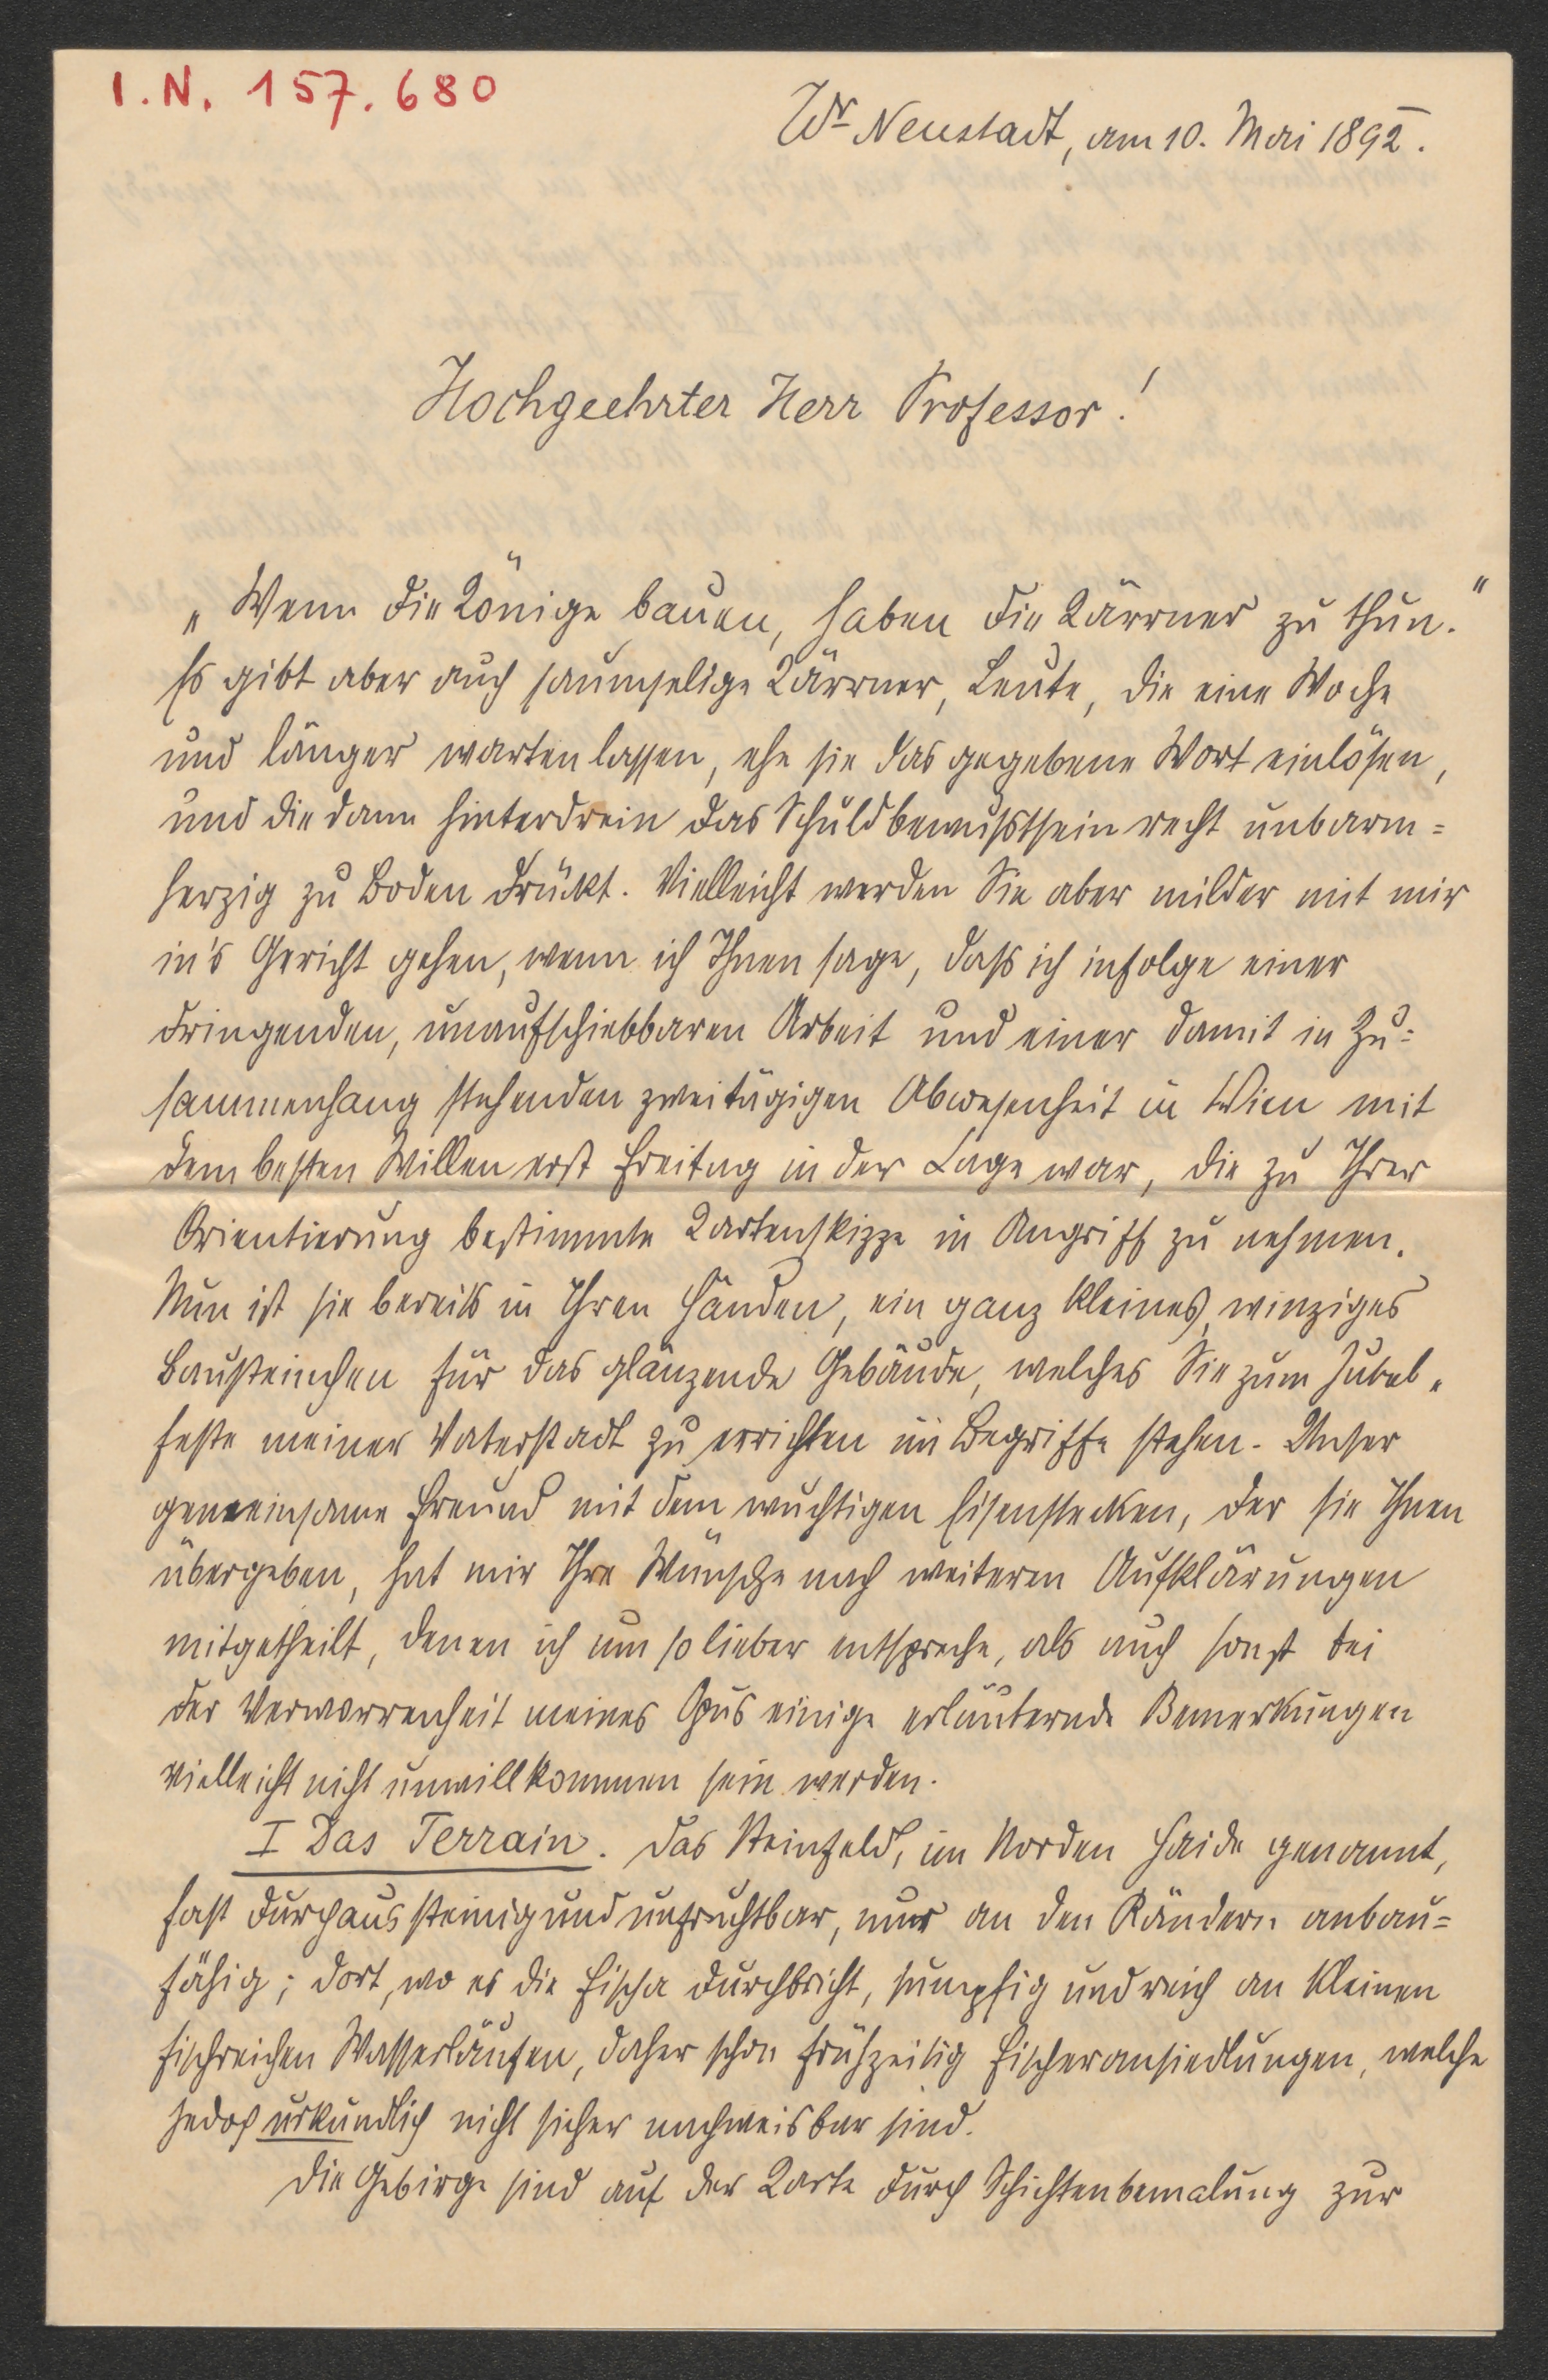 I. N. 157.680
Wr Neustadt, am 10. Mai 1892.
Hochgeehrter Herr Professor!
„Wenn die Könige bauen, haben die Kärrner zu thun."
Es gibt aber auch saumselige Kärrner, Leute, die eine Woche
und länger warten lassen, ehe sie das gegebene Wort einlösen,
und die dann hinterdrein das Schuldbewußtsein recht unbarm=
herzig zu Boden drückt. Vielleicht werden Sie aber milder mit mir
in's Gericht gehen, wenn ich Ihnen sage, daß ich infolge einer
dringenden, unaufschiebbaren Arbeit und einer damit in Zu=
sammenhang stehenden zweitägigen Abwesenheit in Wien mit
dem besten Willen erst Freitag in der Lage war, die zu Ihrer
Orientierung bestimmte Kartenskizze in Angriff zu nehmen.
Nun ist sie bereits in Ihren Händen, ein ganz kleines, winziges
Bausteinchen für das glänzende Gebäude, welches Sie zum Jubel=
feste meiner Vaterstadt zu errichten im Begriffe stehen. Unser
gemeinsame Freund mit dem wuchtigen Eisenstecken, der sie Ihnen
übergeben, hat mir Ihre Wünsche nach weiteren Aufklärungen
mitgetheilt, denen ich um so lieber entspreche, als auch sonst bei
der Verworrenheit meines Opus einige erläuternde Bemerkungen
vielleicht nicht unwillkommen sein werden.
I Das Terrain. Das Steinfeld, im Norden Haide genannt,
fast durchaus steinig und unfruchtbar, nur an den Rändern anbau=
fähig; dort, wo es die Fischa durchbricht, sumpfig und reich an kleinen
fischreichen Wasserläufen, daher schon frühzeitig Fischeransiedlungen, welche
jedoch urkundlich nicht sicher nachweisbar sind.
Die Gebirge sind auf der Karte durch Schichtenbemalung zur